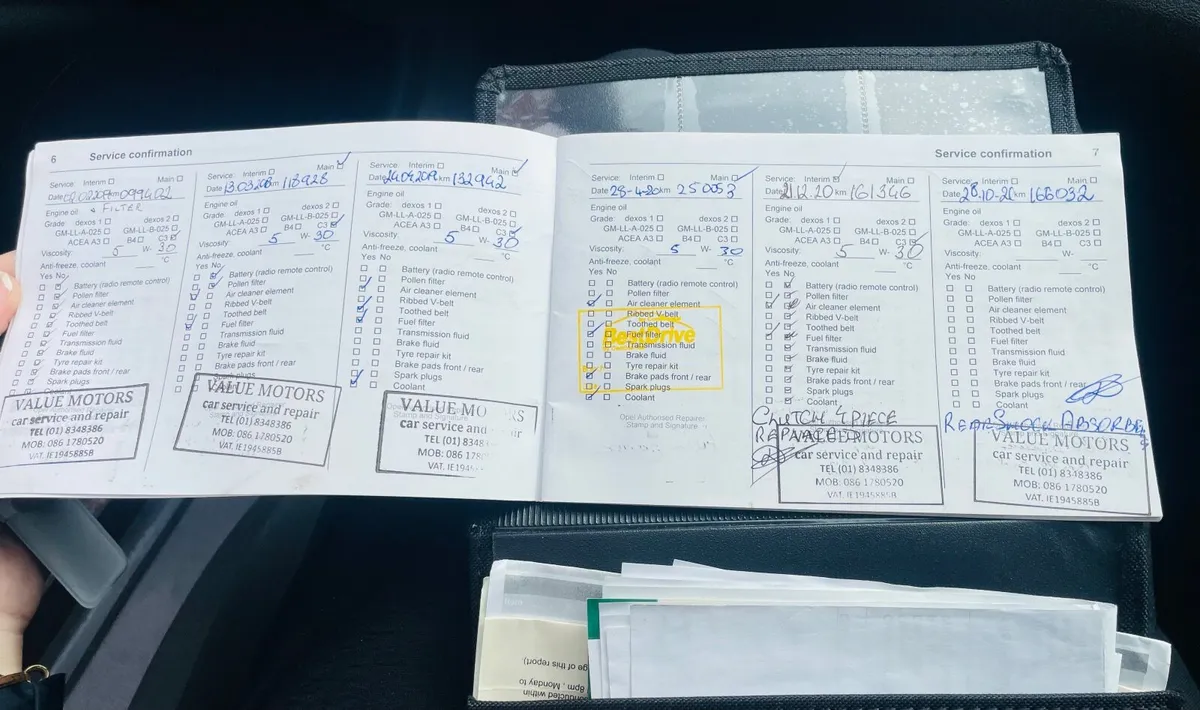 6 Service confirmation
Service: Interim Main
Date km 099402
Engine oil & FILTER
Grade: dexos 1 dexos 2
GM-LL-A-025 GM-LL-B-025
ACEA A3 B4 C3
Viscosity: 5 W- 30
Anti-freeze, coolant °C
Yes No
Battery (radio remote control)
Pollen filter
Air cleaner element
Ribbed V-belt
Toothed belt
Fuel filter
Transmission fluid
Brake fluid
Tyre repair kit
Brake pads front / rear
Spark plugs
VALUE MOTORS
car service and repair
TEL (01) 8348386
MOB: 086 1780520
VAT. IE1945885B
Service: Interim Main
Date km 118928
Engine oil
Grade: dexos 1 dexos 2
GM-LL-A-025 GM-LL-B-025
ACEA A3 B4 C3
Viscosity: 5 W- 30
Anti-freeze, coolant °C
Yes No
Battery (radio remote control)
Pollen filter
Air cleaner element
Ribbed V-belt
Toothed belt
Fuel filter
Transmission fluid
Brake fluid
Tyre repair kit
Brake pads front / rear
Spark plugs
VALUE MOTORS
car service and repair
TEL (01) 8348386
MOB: 086 1780520
VAT. IE1945885B
Service: Interim Main
Date km 132942
Engine oil
Grade: dexos 1 dexos 2
GM-LL-A-025 GM-LL-B-025
ACEA A3 B4 C3
Viscosity: 5 W- 30
Anti-freeze, coolant °C
Yes No
Battery (radio remote control)
Pollen filter
Air cleaner element
Ribbed V-belt
Toothed belt
Fuel filter
Transmission fluid
Brake fluid
Tyre repair kit
Brake pads front / rear
Spark plugs
Coolant
VALUE MOTORS
car service and repair
TEL (01) 8348
MOB: 086 178
VAT. IE1945
Service confirmation 7
Service: Interim Main
Date 28-4-20 km 250053
Engine oil
Grade: dexos 1 dexos 2
GM-LL-A-025 GM-LL-B-025
ACEA A3 B4 C3
Viscosity: 5 W- 30
Anti-freeze, coolant °C
Yes No
Battery (radio remote control)
Pollen filter
Air cleaner element
Ribbed V-belt
Toothed belt
Fuel filter
Transmission fluid
Brake fluid
Tyre repair kit
Brake pads front / rear
Spark plugs
Coolant
BestDrive
Opel Authorised Repairer
Stamp and Signature
Service: Interim Main
Date 21.12.20 km 161346
Engine oil
Grade: dexos 1 dexos 2
GM-LL-A-025 GM-LL-B-025
ACEA A3 B4 C3
Viscosity: 5 W- 30
Anti-freeze, coolant °C
Yes No
Battery (radio remote control)
Pollen filter
Air cleaner element
Ribbed V-belt
Toothed belt
Fuel filter
Transmission fluid
Brake fluid
Tyre repair kit
Brake pads front / rear
Spark plugs
Coolant
CLUTCH 4 PIECE
REPLACED
VALUE MOTORS
car service and repair
TEL (01) 8348386
MOB: 086 1780520
VAT. IE1945885B
Service: Interim Main
Date 28.10-21 km 166032
Engine oil
Grade: dexos 1 dexos 2
GM-LL-A-025 GM-LL-B-025
ACEA A3 B4 C3
Viscosity: W-
Anti-freeze, coolant °C
Yes No
Battery (radio remote control)
Pollen filter
Air cleaner element
Ribbed V-belt
Toothed belt
Fuel filter
Transmission fluid
Brake fluid
Tyre repair kit
Brake pads front / rear
Spark plugs
Coolant
REAR SHOCK ABSORBER
VALUE MOTORS
car service and repair
TEL (01) 8348386
MOB: 086 1780520
VAT. IE1945885B
ge of this report)
8pm , Monday to
onducted within